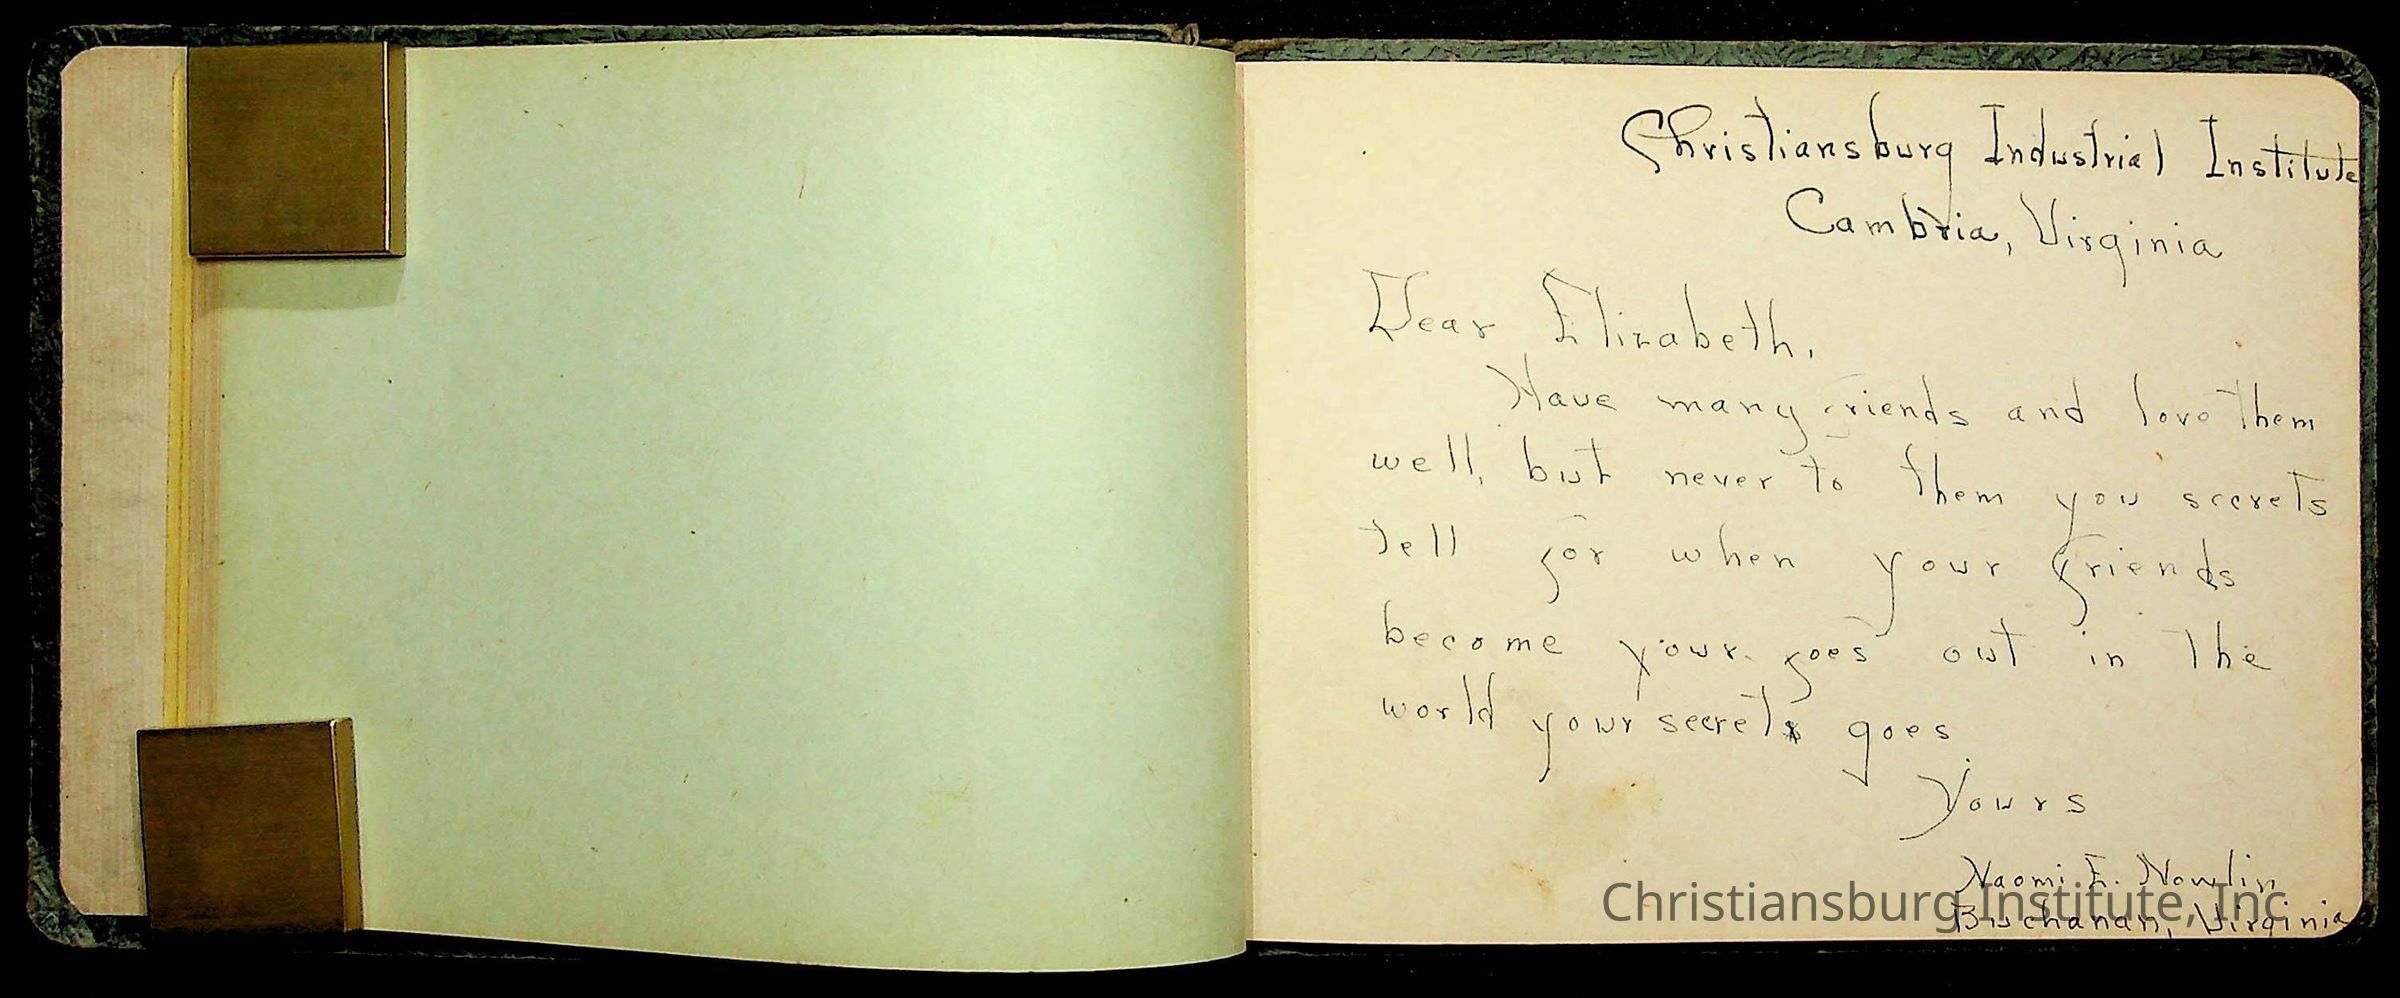 Christiansburg Industrial Institute
Cambria, Virginia
Dear Elizabeth,
Have many friends and love them
well, but never to them you secrets
tell for when your friends
become your foes out in the
world your secrets goes.
Yours
Naomi E. Nowlin
Buchanan, Virginia
Christiansburg Institute, Inc